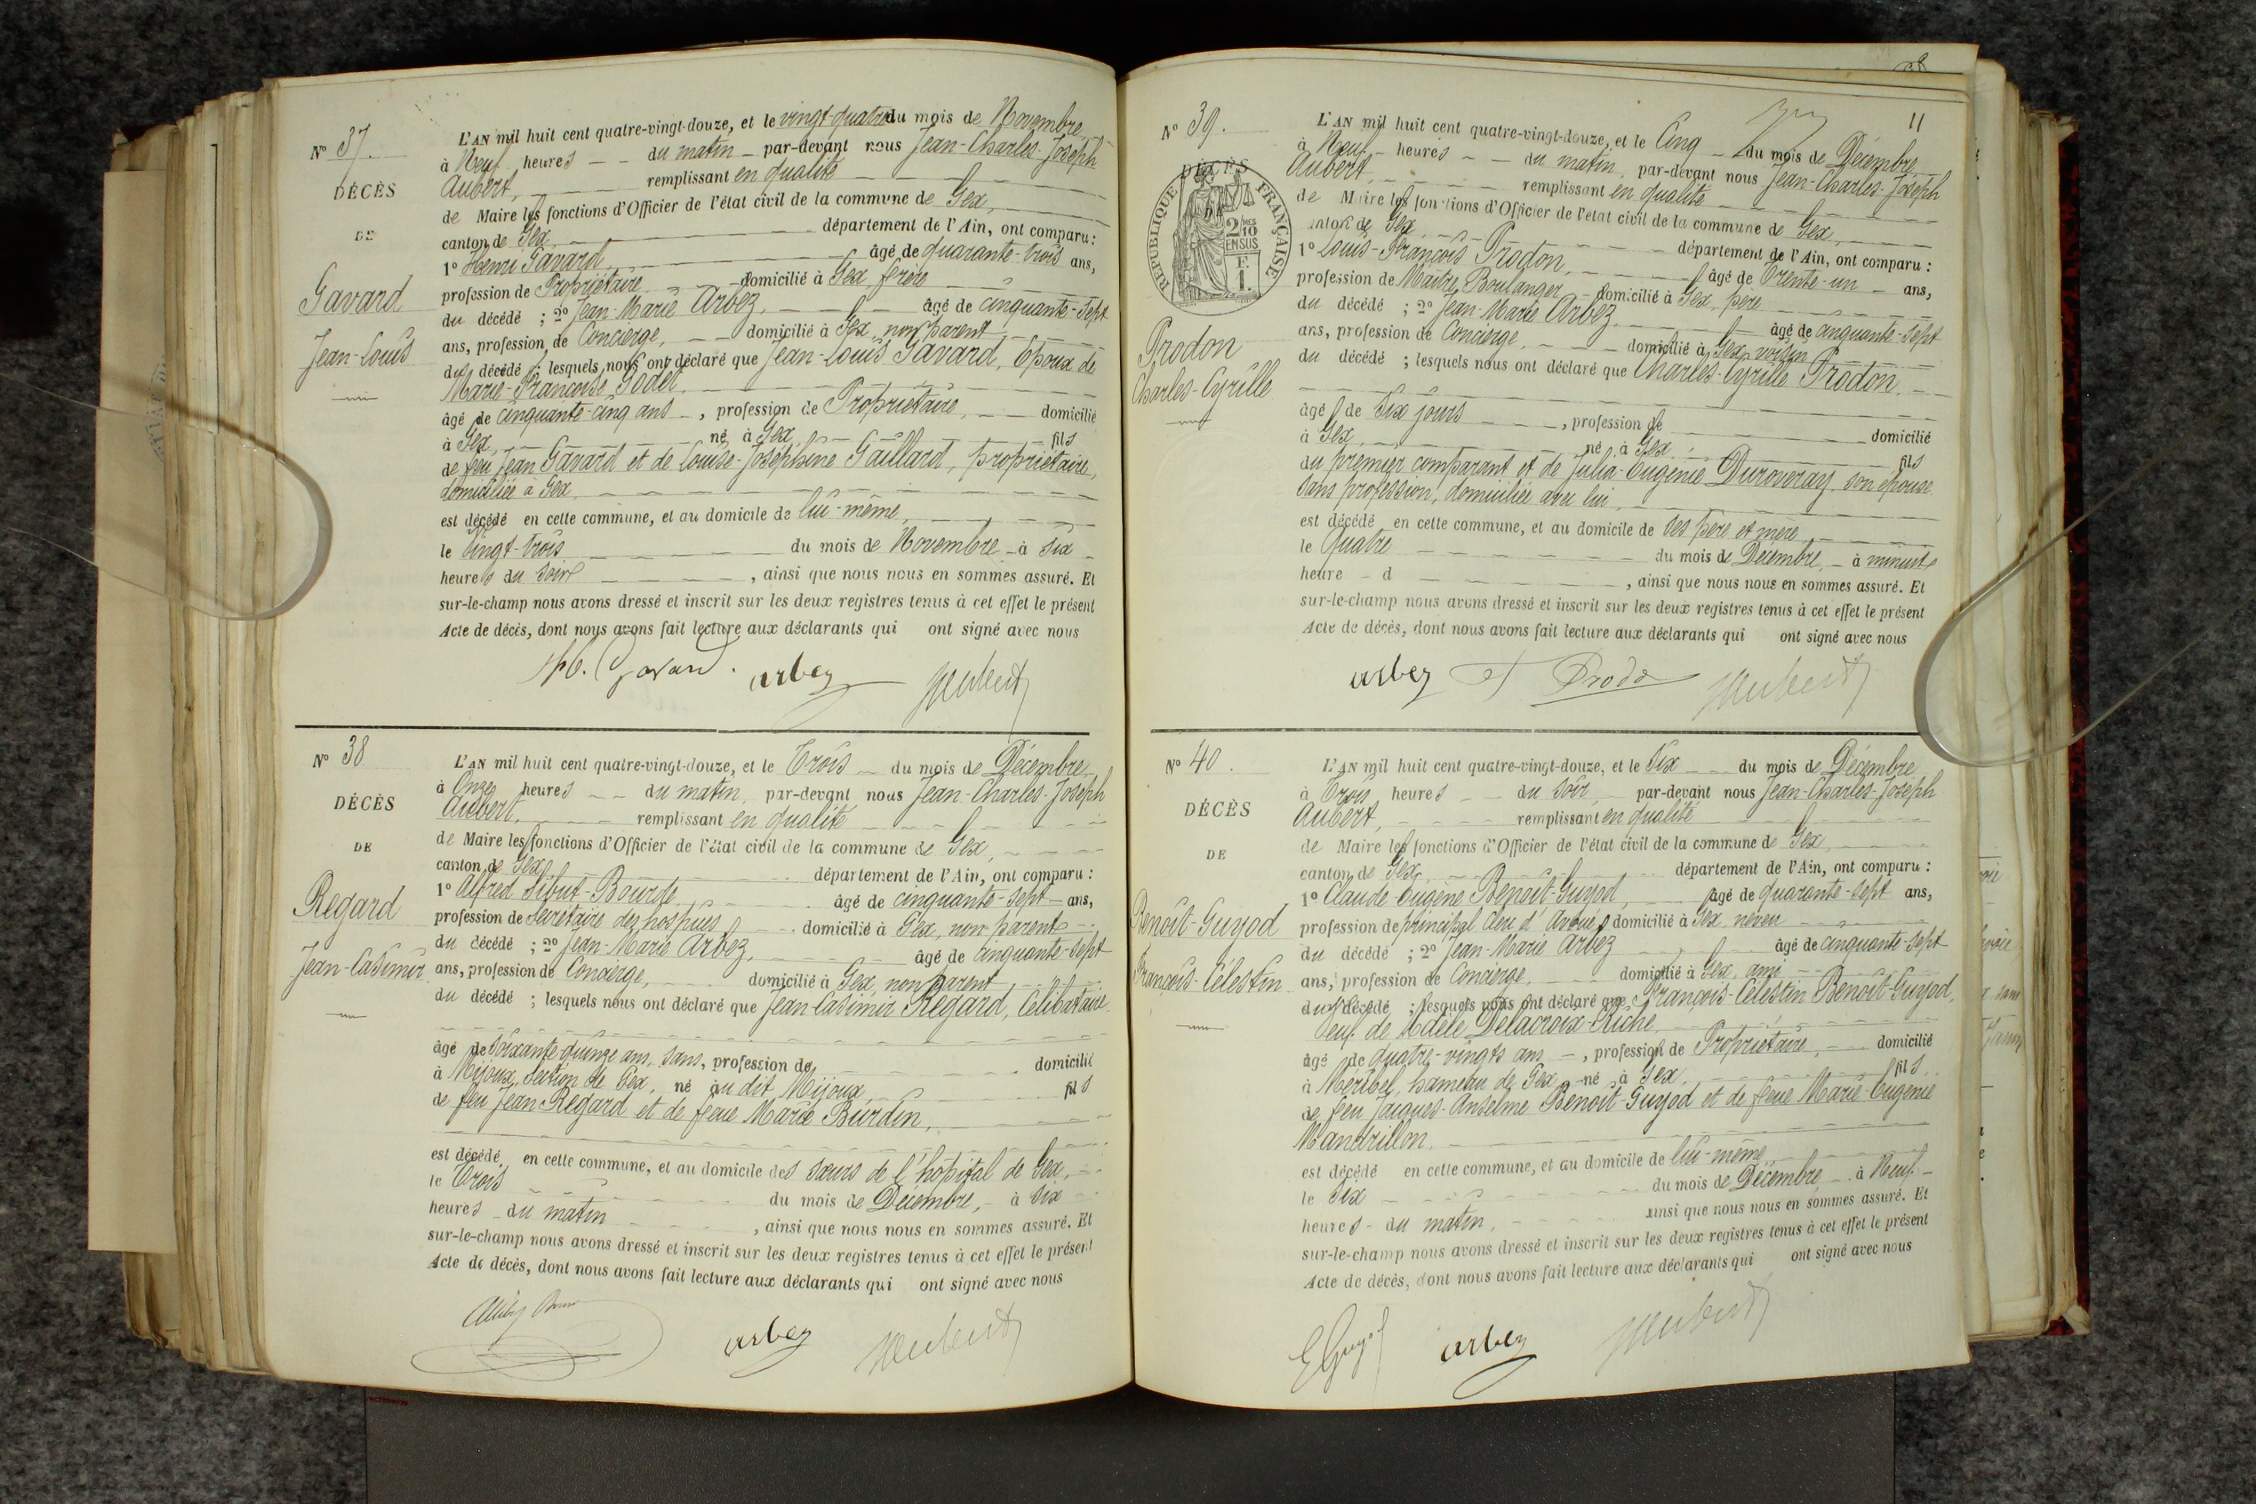 N° 37.
DÉCÈS
DE
Gavard
Jean-Louis
L'AN mil huit cent quatre-vingt-douze, et le vingt-quatre du mois de Novembre,
à Neuf heures du matin par-devant nous Jean-Charles-Joseph
Aubert, remplissant en qualité
de Maire les fonctions d'Officier de l'état civil de la commune de Gex,
canton de Gex département de l'Ain, ont comparu :
1° Henri Gavard âgé de quarante-trois ans,
profession de Propriétaire domicilié à Gex frère
du décédé ; 2° Jean-Marie Arbez, âgé de cinquante-sept
ans, profession de Concierge, domicilié à Gex, non parent
du décédé ; lesquels nous ont déclaré que Jean-Louis Gavard, Epoux de
Marie-Françoise Godet,
âgé de cinquante-cinq ans, profession de Propriétaire, domicilié
à Gex, né à Gex, fils
de feu Jean Gavard et de Louise-Joséphine Gaillard, propriétaire,
domiciliée à Gex.
est décédé en cette commune, et au domicile de lui-même,
le Vingt-trois du mois de Novembre à six
heures du soir, ainsi que nous nous en sommes assuré. Et
sur-le-champ nous avons dressé et inscrit sur les deux registres tenus à cet effet le présent
Acte de décès, dont nous avons fait lecture aux déclarants qui ont signé avec nous
H. Gavard. arbez Aubert
N° 38
DÉCÈS
DE
Regard
Jean-Casimir
L'AN mil huit cent quatre-vingt-douze, et le Trois du mois de Décembre,
à Onze heures du matin, par-devant nous Jean-Charles-Joseph
Aubert, remplissant en qualité
de Maire les fonctions d'Officier de l'état civil de la commune de Gex,
canton de Gex département de l'Ain, ont comparu :
1° Alfred Sibut-Bourde âgé de cinquante-sept ans,
profession de Secrétaire des hospices domicilié à Gex, non parent
du décédé ; 2° Jean-Marie Arbez, âgé de cinquante-sept
ans, profession de Concierge, domicilié à Gex, non parent
du décédé ; lesquels nous ont déclaré que Jean-Casimir Regard, Célibataire
âgé de soixante-quinze ans, sans, profession de domicilié
à Mijoux, Section de Gex, né au dit Mijoux, fils
de feu Jean Regard et de feue Marie Burdin,
est décédé en cette commune, et au domicile des sœurs de l'hôpital de Gex,
le Trois du mois de Décembre, à six
heures du matin, ainsi que nous nous en sommes assuré. Et
sur-le-champ nous avons dressé et inscrit sur les deux registres tenus à cet effet le présent
Acte de décès, dont nous avons fait lecture aux déclarants qui ont signé avec nous
arbez Aubert
11
N° 39.
DÉCÈS
RÉPUBLIQUE FRANÇAISE
2/10
EN SUS
F.
1.
Prodon
Charles-Cyrille
L'AN mil huit cent quatre-vingt-douze, et le Cinq du mois de Décembre
à Neuf heures du matin, par-devant nous Jean-Charles-Joseph
Aubert, remplissant en qualité
de Maire les fonctions d'Officier de l'état civil de la commune de Gex,
canton de Gex département de l'Ain, ont comparu :
1° Louis-François Prodon, âgé de Trente-un ans,
profession de Maître Boulanger domicilié à Gex, père
du décédé ; 2° Jean-Marie Arbez, âgé de cinquante-sept
ans, profession de Concierge, domicilié à Gex, voisin
du décédé ; lesquels nous ont déclaré que Charles-Cyrille Prodon,
âgé de Six jours, profession de domicilié
à Gex, né à Gex, fils
du premier comparant et de Julia-Eugénie Duroveray son épouse
sans profession, domiciliée avec lui,
est décédé en cette commune, et au domicile de ses père et mère
le Quatre du mois de Décembre, à minuit
heure d, ainsi que nous nous en sommes assuré. Et
sur-le-champ nous avons dressé et inscrit sur les deux registres tenus à cet effet le présent
Acte de décès, dont nous avons fait lecture aux déclarants qui ont signé avec nous
arbez Prodo Aubert
N° 40.
DÉCÈS
DE
Benoît-Guyod
François-Célestin
L'AN mil huit cent quatre-vingt-douze, et le Six du mois de Décembre
à Trois heures du soir, par-devant nous Jean-Charles-Joseph
Aubert, remplissant en qualité
de Maire les fonctions d'Officier de l'état civil de la commune de Gex,
canton de Gex département de l'Ain, ont comparu :
1° Claude Eugène Benoît-Guyod, âgé de quarante-sept ans,
profession de principal clerc d'Avoué domicilié à Gex, neveu
du décédé ; 2° Jean-Marie Arbez âgé de cinquante-sept
ans, profession de Concierge, domicilié à Gex, ami
du décédé ; lesquels nous ont déclaré que François-Célestin Benoît-Guyod,
Veuf de Adèle Delacroix-Riche
âgé de quatre-vingts ans, profession de Propriétaire, domicilié
à Meribel, hameau de Gex, né à Gex, fils
de feu Jacques-Anselme Benoît-Guyod et de feue Marie-Eugénie
Mandrillon.
est décédé en cette commune, et au domicile de lui-même
le Six du mois de Décembre à Neuf
heures du matin, ainsi que nous nous en sommes assuré. Et
sur-le-champ nous avons dressé et inscrit sur les deux registres tenus à cet effet le présent
Acte de décès, dont nous avons fait lecture aux déclarants qui ont signé avec nous
E Guyod arbez Aubert